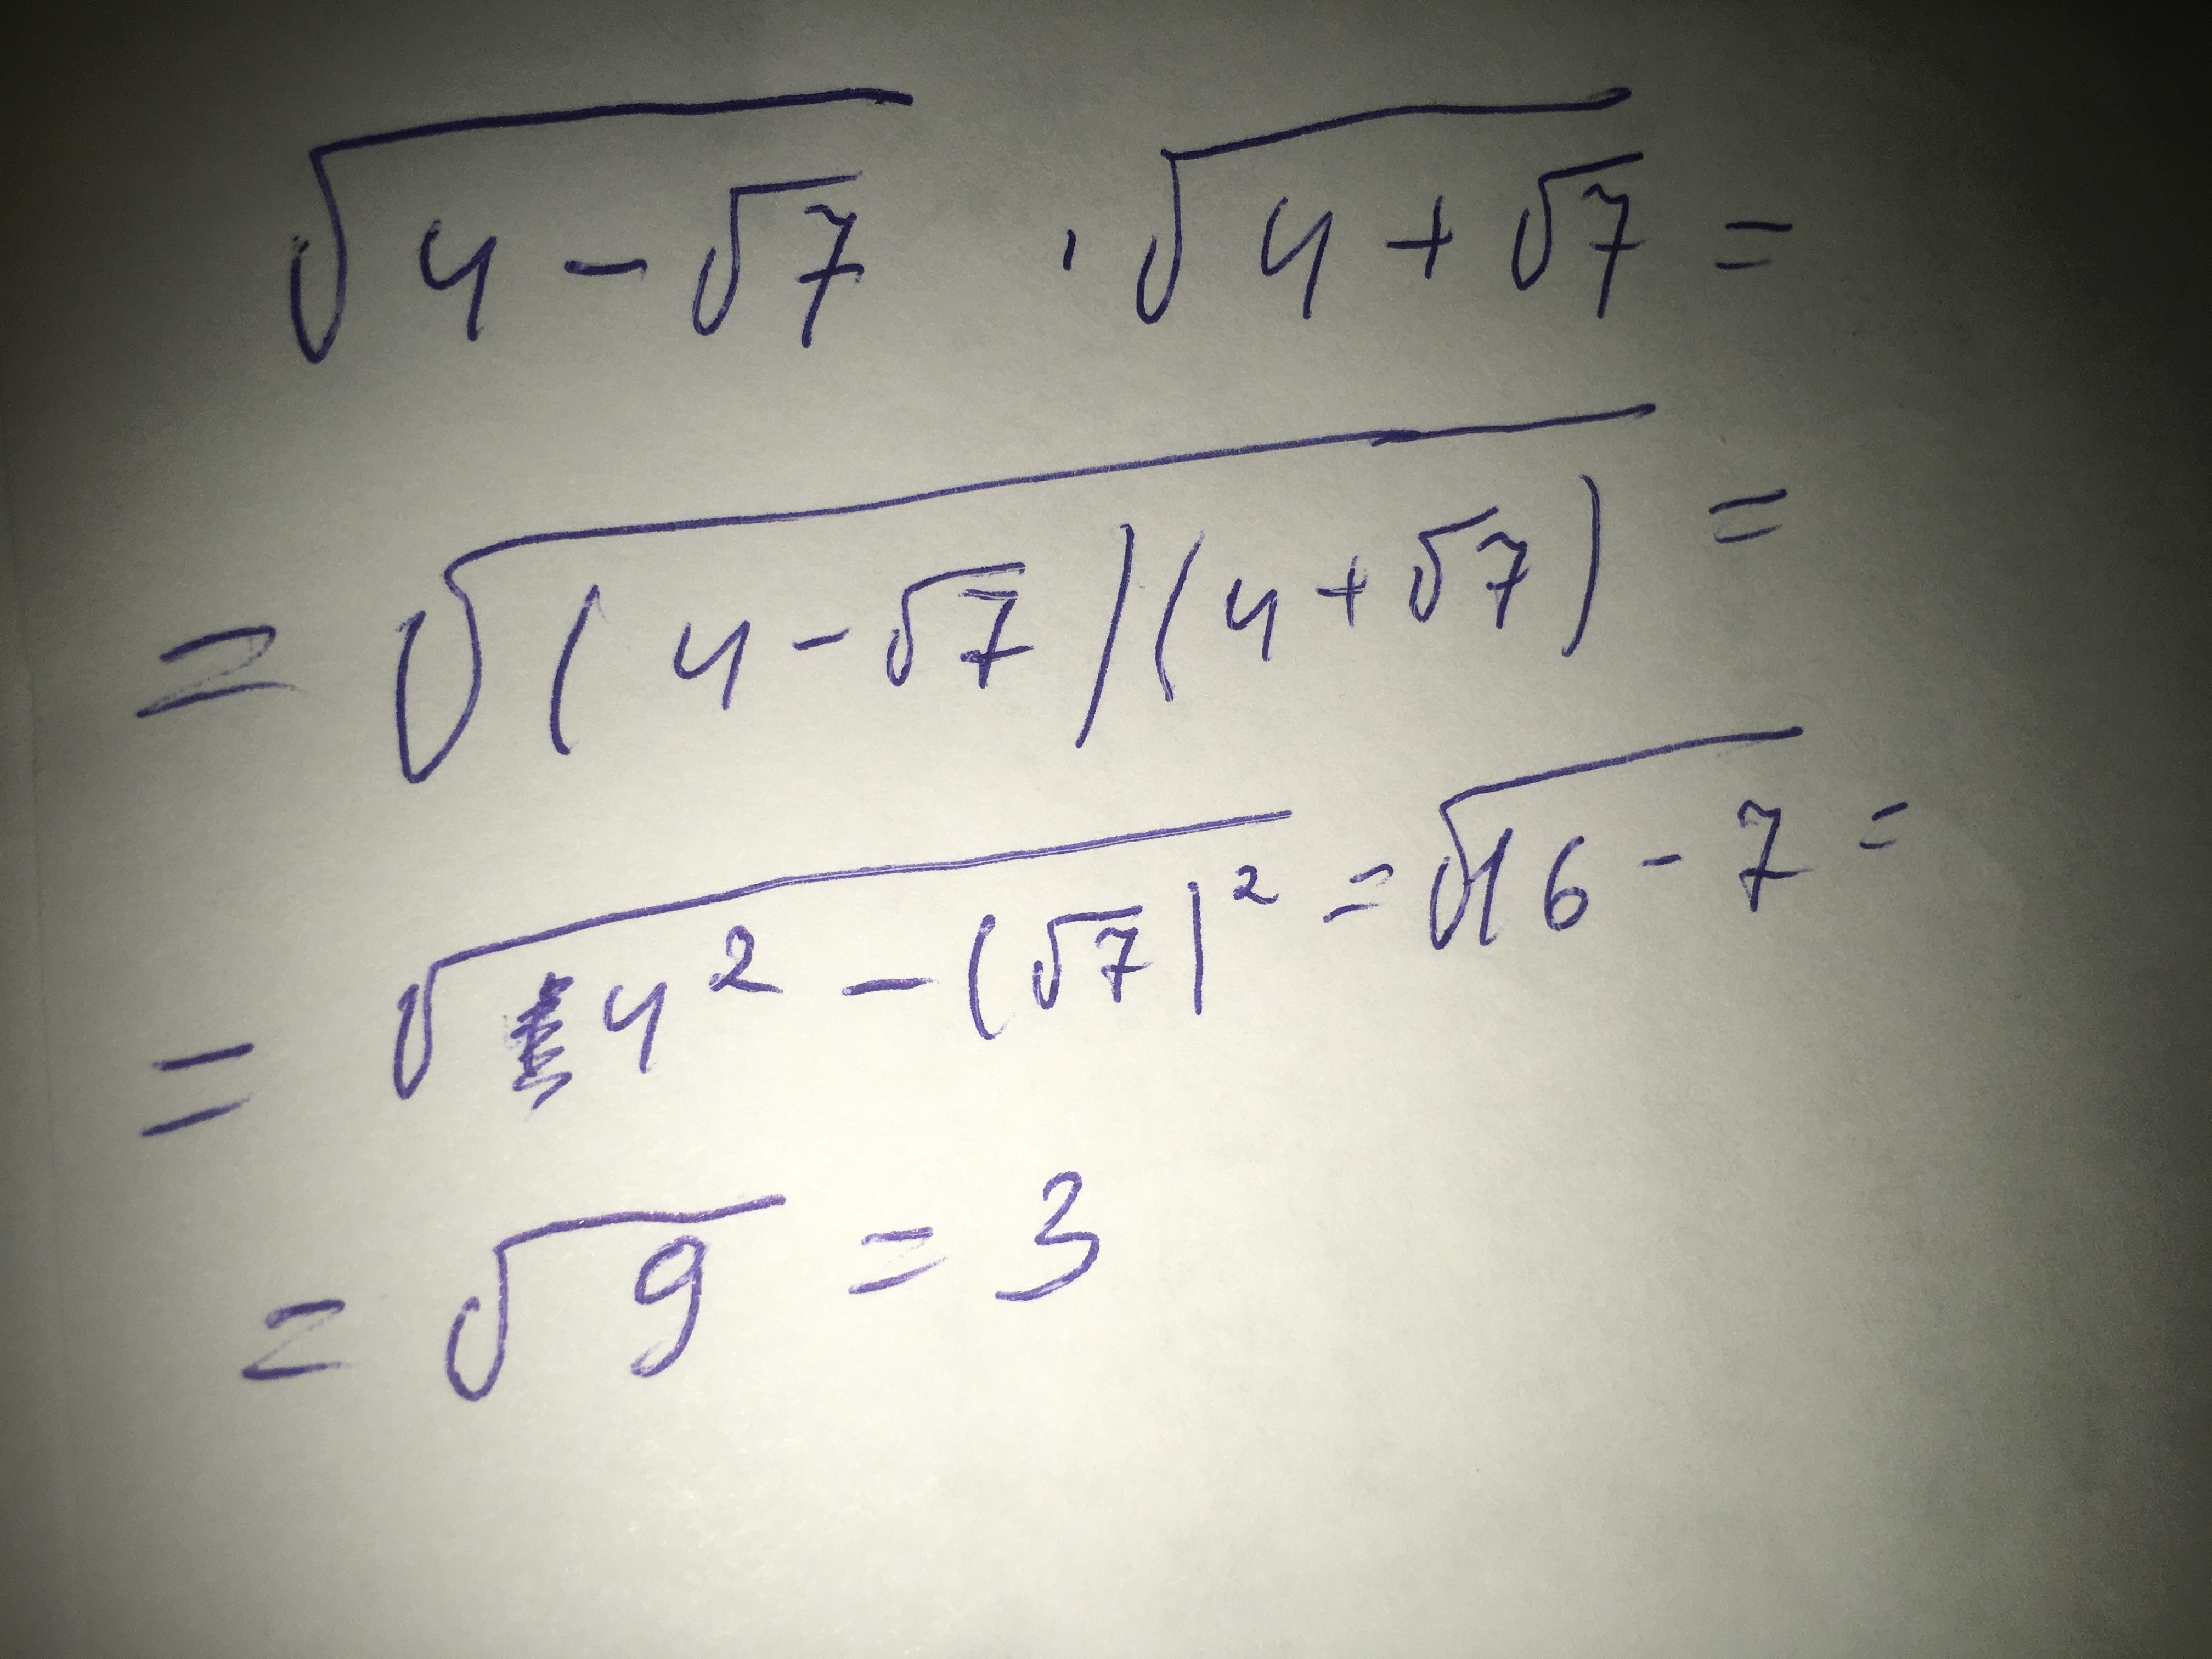 √(4 - √7) · √(4 + √7) =
= √((4 - √7)(4 + √7)) =
= √(4² - (√7)²) = √(16 - 7) =
= √9 = 3